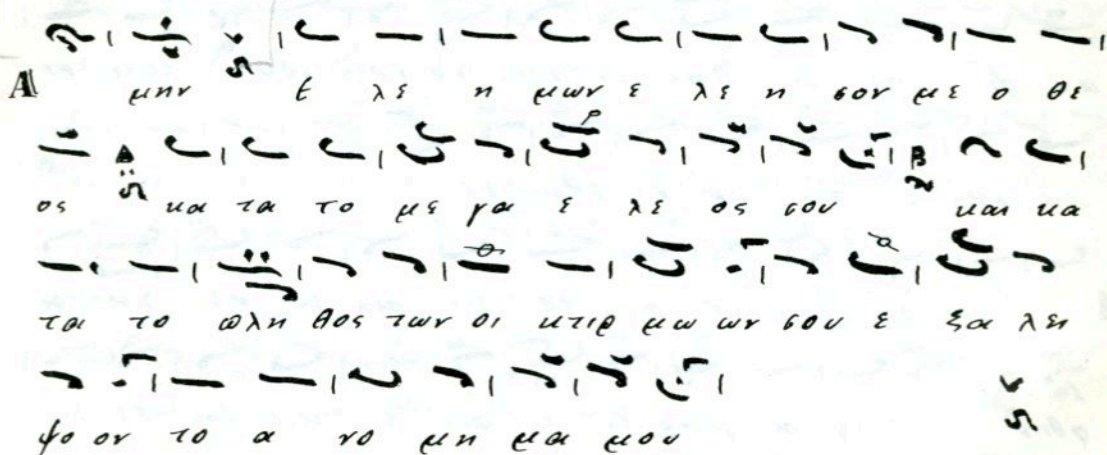 Α μην ε λε η μων ε λε η σον με ο θε
ος κα τα το με γα ε λε ος σου και κα
τα το πλη θος των οι κτιρ μω ων σου ε ξα λει
ψο ον το α νο μη μα μου